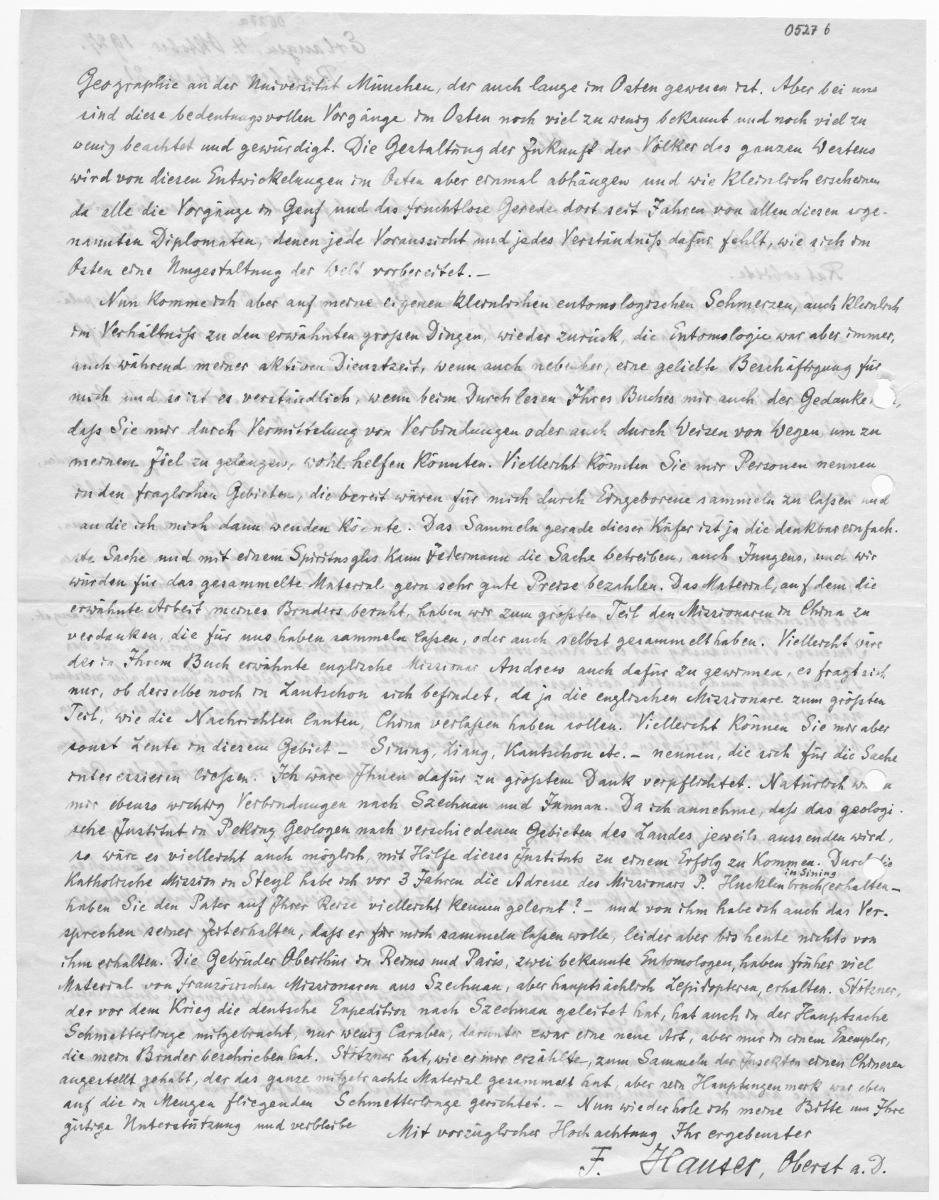 0527 b
Geographie an der Universität München, der auch lange im Osten gewesen ist. Aber bei uns
sind diese bedeutungsvollen Vorgänge im Osten noch viel zu wenig bekannt und noch viel zu
wenig beachtet und gewürdigt. Die Gestaltung der Zukunft der Völker des ganzen Westens
wird von diesen Entwickelungen im Osten aber einmal abhängen und wie kleinlich erscheinen
da alle die Vorgänge in Genf und das fruchtlose Gerede dort seit Jahren von allen diesen soge-
nannten Diplomaten, denen jede Voraussicht und jedes Verständniß dafür fehlt, wie sich im
Osten eine Umgestaltung der Welt vorbereitet. —
Nun komme ich aber auf meine eigenen kleinlichen entomologischen Schmerzen, auch kleinlich
im Verhältniß zu den erwähnten großen Dingen, wieder zurück, die Entomologie war aber immer,
auch während meiner aktiven Dienstzeit, wenn auch nebenher, eine geliebte Beschäftigung für
mich und so ist es verständlich, wenn beim Durchlesen Ihres Buches mir auch der Gedanke
daß Sie mir durch Vermittelung von Verbindungen oder auch durch Weisen von Wegen, um zu
meinem Ziel zu gelangen, wohl helfen könnten. Vielleicht könnten Sie mir Personen nennen
in den fraglichen Gebieten, die bereit wären für mich durch Eingeborene sammeln zu laßen und
an die ich mich dann wenden könnte. Das Sammeln gerade dieser Käfer ist ja die dankbar einfach-
ste Sache und mit einem Spiritusglas kann Jedermann die Sache betreiben, auch Jungens, und wir
würden für das gesammelte Material gern sehr gute Preise bezahlen. Das Material, auf dem die
erwähnte Arbeit meines Bruders beruht, haben wir zum größten Teil den Missionaren in China zu
verdanken, die für uns haben sammeln laßen, oder auch selbst gesammelt haben. Vielleicht wäre
der in Ihrem Buch erwähnte englische Missionar Andrews auch dafür zu gewinnen, es fragt sich
nur, ob derselbe noch in Lantschou sich befindet, da ja die englischen Missionare zum größten
Teil, wie die Nachrichten lauten, China verlaßen haben sollen. Vielleicht können Sie mir aber
sonst Leute in diesem Gebiet — Sining, Liang, Kantschou etc. — nennen, die sich für die Sache
interessieren ließen. Ich wäre Ihnen dafür zu größtem Dank verpflichtet. Natürlich
mir ebenso wichtig Verbindungen nach Szechuan und Junnan. Da ich annehme, daß das geologi-
sche Institut in Peking Geologen nach verschiedenen Gebieten des Landes jeweils aussenden wird,
so wäre es vielleicht auch möglich, mit Hilfe dieses Instituts zu einem Erfolg zu kommen. Durch die
Katholische Mission in Steyl habe ich vor 3 Jahren die Adresse des Missionars P. Hucklenbruch in Sining erhalten —
haben Sie den Pater auf Ihrer Reise vielleicht kennen gelernt? — und von ihm habe ich auch das Ver-
sprechen seiner Zeit erhalten, daß er für mich sammeln laßen wolle, leider aber bis heute nichts von
ihm erhalten. Die Gebrüder Oberthür in Reims und Paris, zwei bekannte Entomologen, haben früher viel
Material von französischen Missionaren aus Szechuan, aber hauptsächlich Lepidopteren, erhalten. Stötzner,
der vor dem Krieg die deutsche Expedition nach Szechuan geleitet hat, hat auch in der Hauptsache
Schmetterlinge mitgebracht, nur wenig Caraben, darunter zwar eine neue Art, aber nur in einem Exemplar,
die mein Bruder beschrieben hat. Stötzner hat, wie er mir erzählte, zum Sammeln der Insekten einen Chinesen
angestellt gehabt, der das ganze mitgebrachte Material gesammelt hat, aber sein Hauptaugenmerk war eben
auf die in Mengen fliegenden Schmetterlinge gerichtet. — Nun wiederhole ich meine Bitte um Ihre
gütige Unterstützung und verbleibe
Mit vorzüglicher Hochachtung Ihr ergebenster
F. Hauser, Oberst a. D.